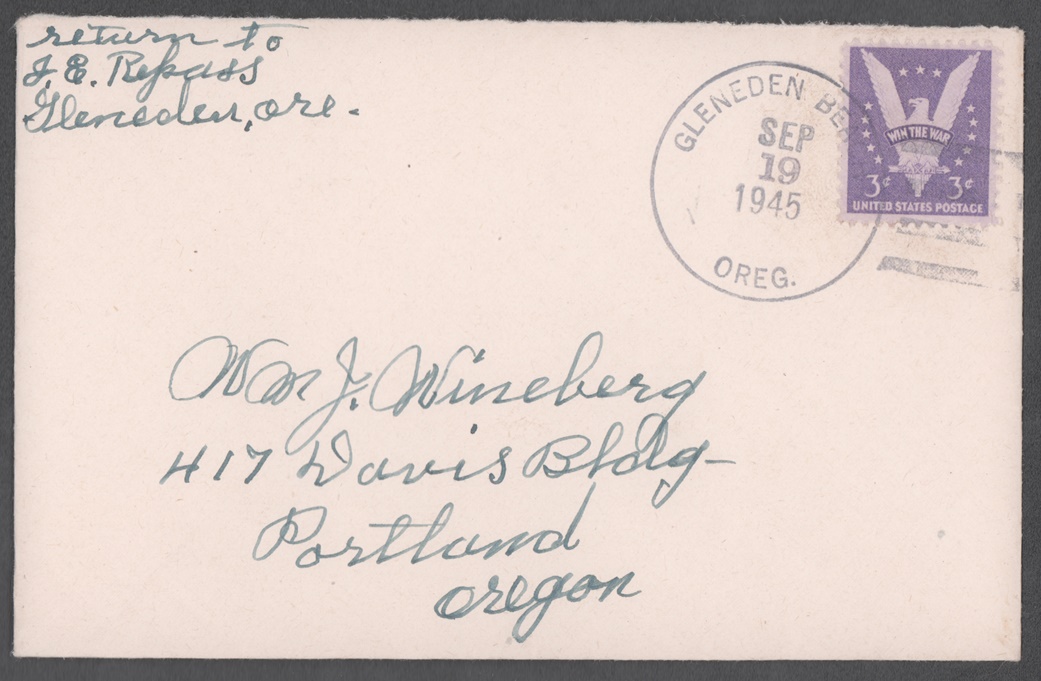 return to
J. E. Repass
Gleneden, ore.
GLENEDEN
SEP
19
1945
OREG.
WIN THE WAR
3¢ 3¢
UNITED STATES POSTAGE
Wm J. Wineberg
417 Davis Bldg-
Portland
oregon